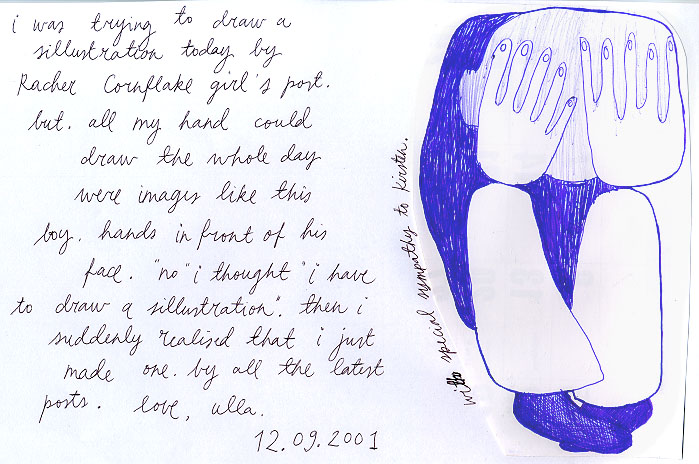 i was trying to draw a
sillustration today by
Racher Cornflake girl's post.
but. all my hand could
draw the whole day
were images like this
boy. hands in front of his
face. "no" i thought "i have
to draw a sillustration". then i
suddenly realised that i just
made one. by all the latest
posts. love, ulla.
12.09.2001
with special sympathy to Kirsten.